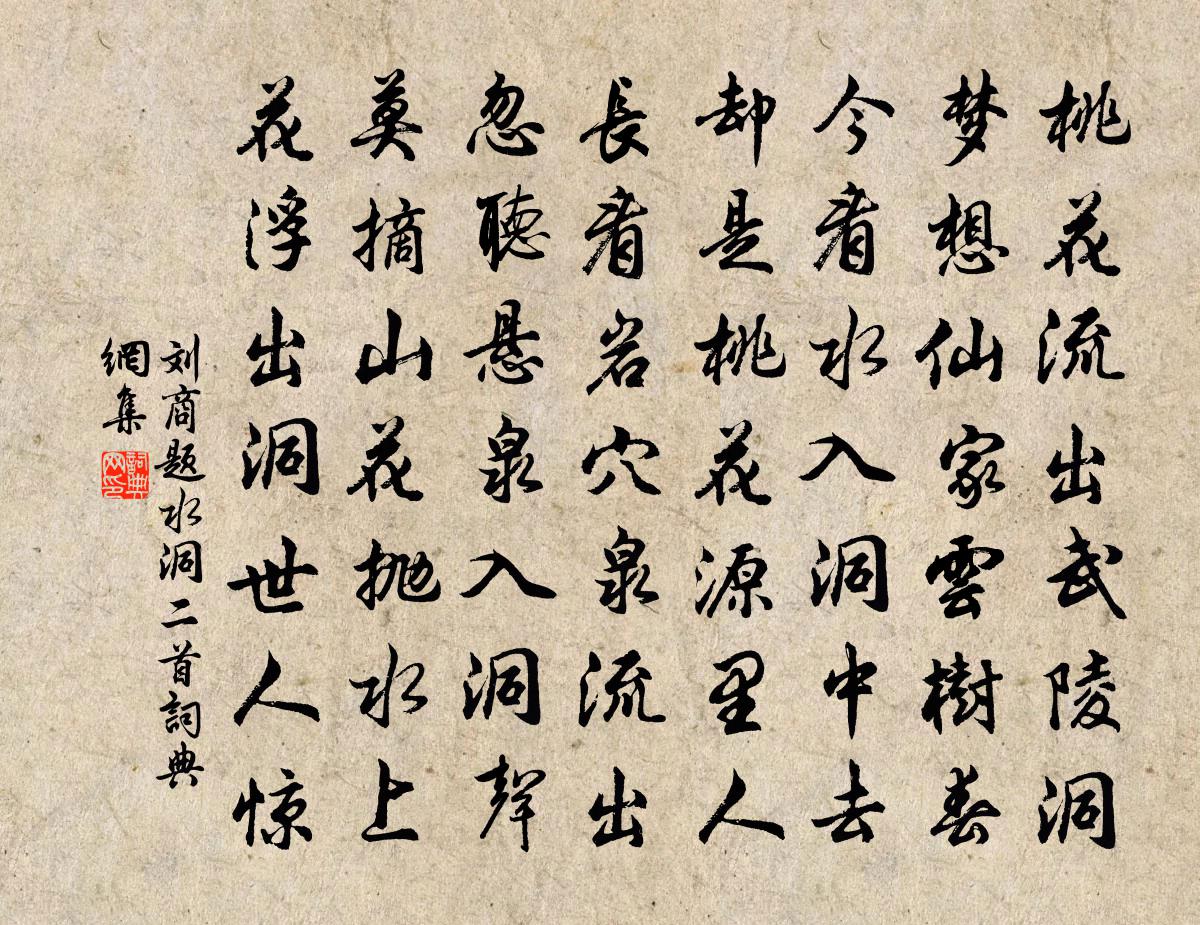 桃花流出武陵洞
梦想仙家雲樹春
今看水入洞中去
却是桃花源里人
長看岩穴泉流出
忽聽悬泉入洞聲
莫摘山花抛水上
花浮出洞世人惊
刘商题水洞二首詞典
網集
詞典
网印